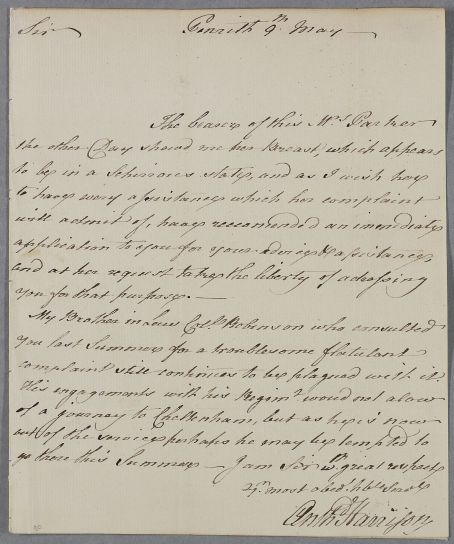 Sir Penrith 9th May
The bearer of this Mrs Partner
the other Day shewed me her Breast, which appears
to be in a Schirrous state, and as I wish her
to have every assistance which her complaint
will admit of, have recommended an immediate
application to you for your advice & assistance
and at her request take the liberty of adressing
you for that purpose. —
My Brother in law Coll Robinson who consulted
you last Summer for a troublesome flatulent
complaint still continues to be plagued with it.
His engagements with his Regimt would not alow
of a journey to Cheltenham, but as he is now
out of the service perhaps he may be tempted to
go there this Summer — I am Sir wth great respect
Yr most obedt hble Servt
Anthd Harrison